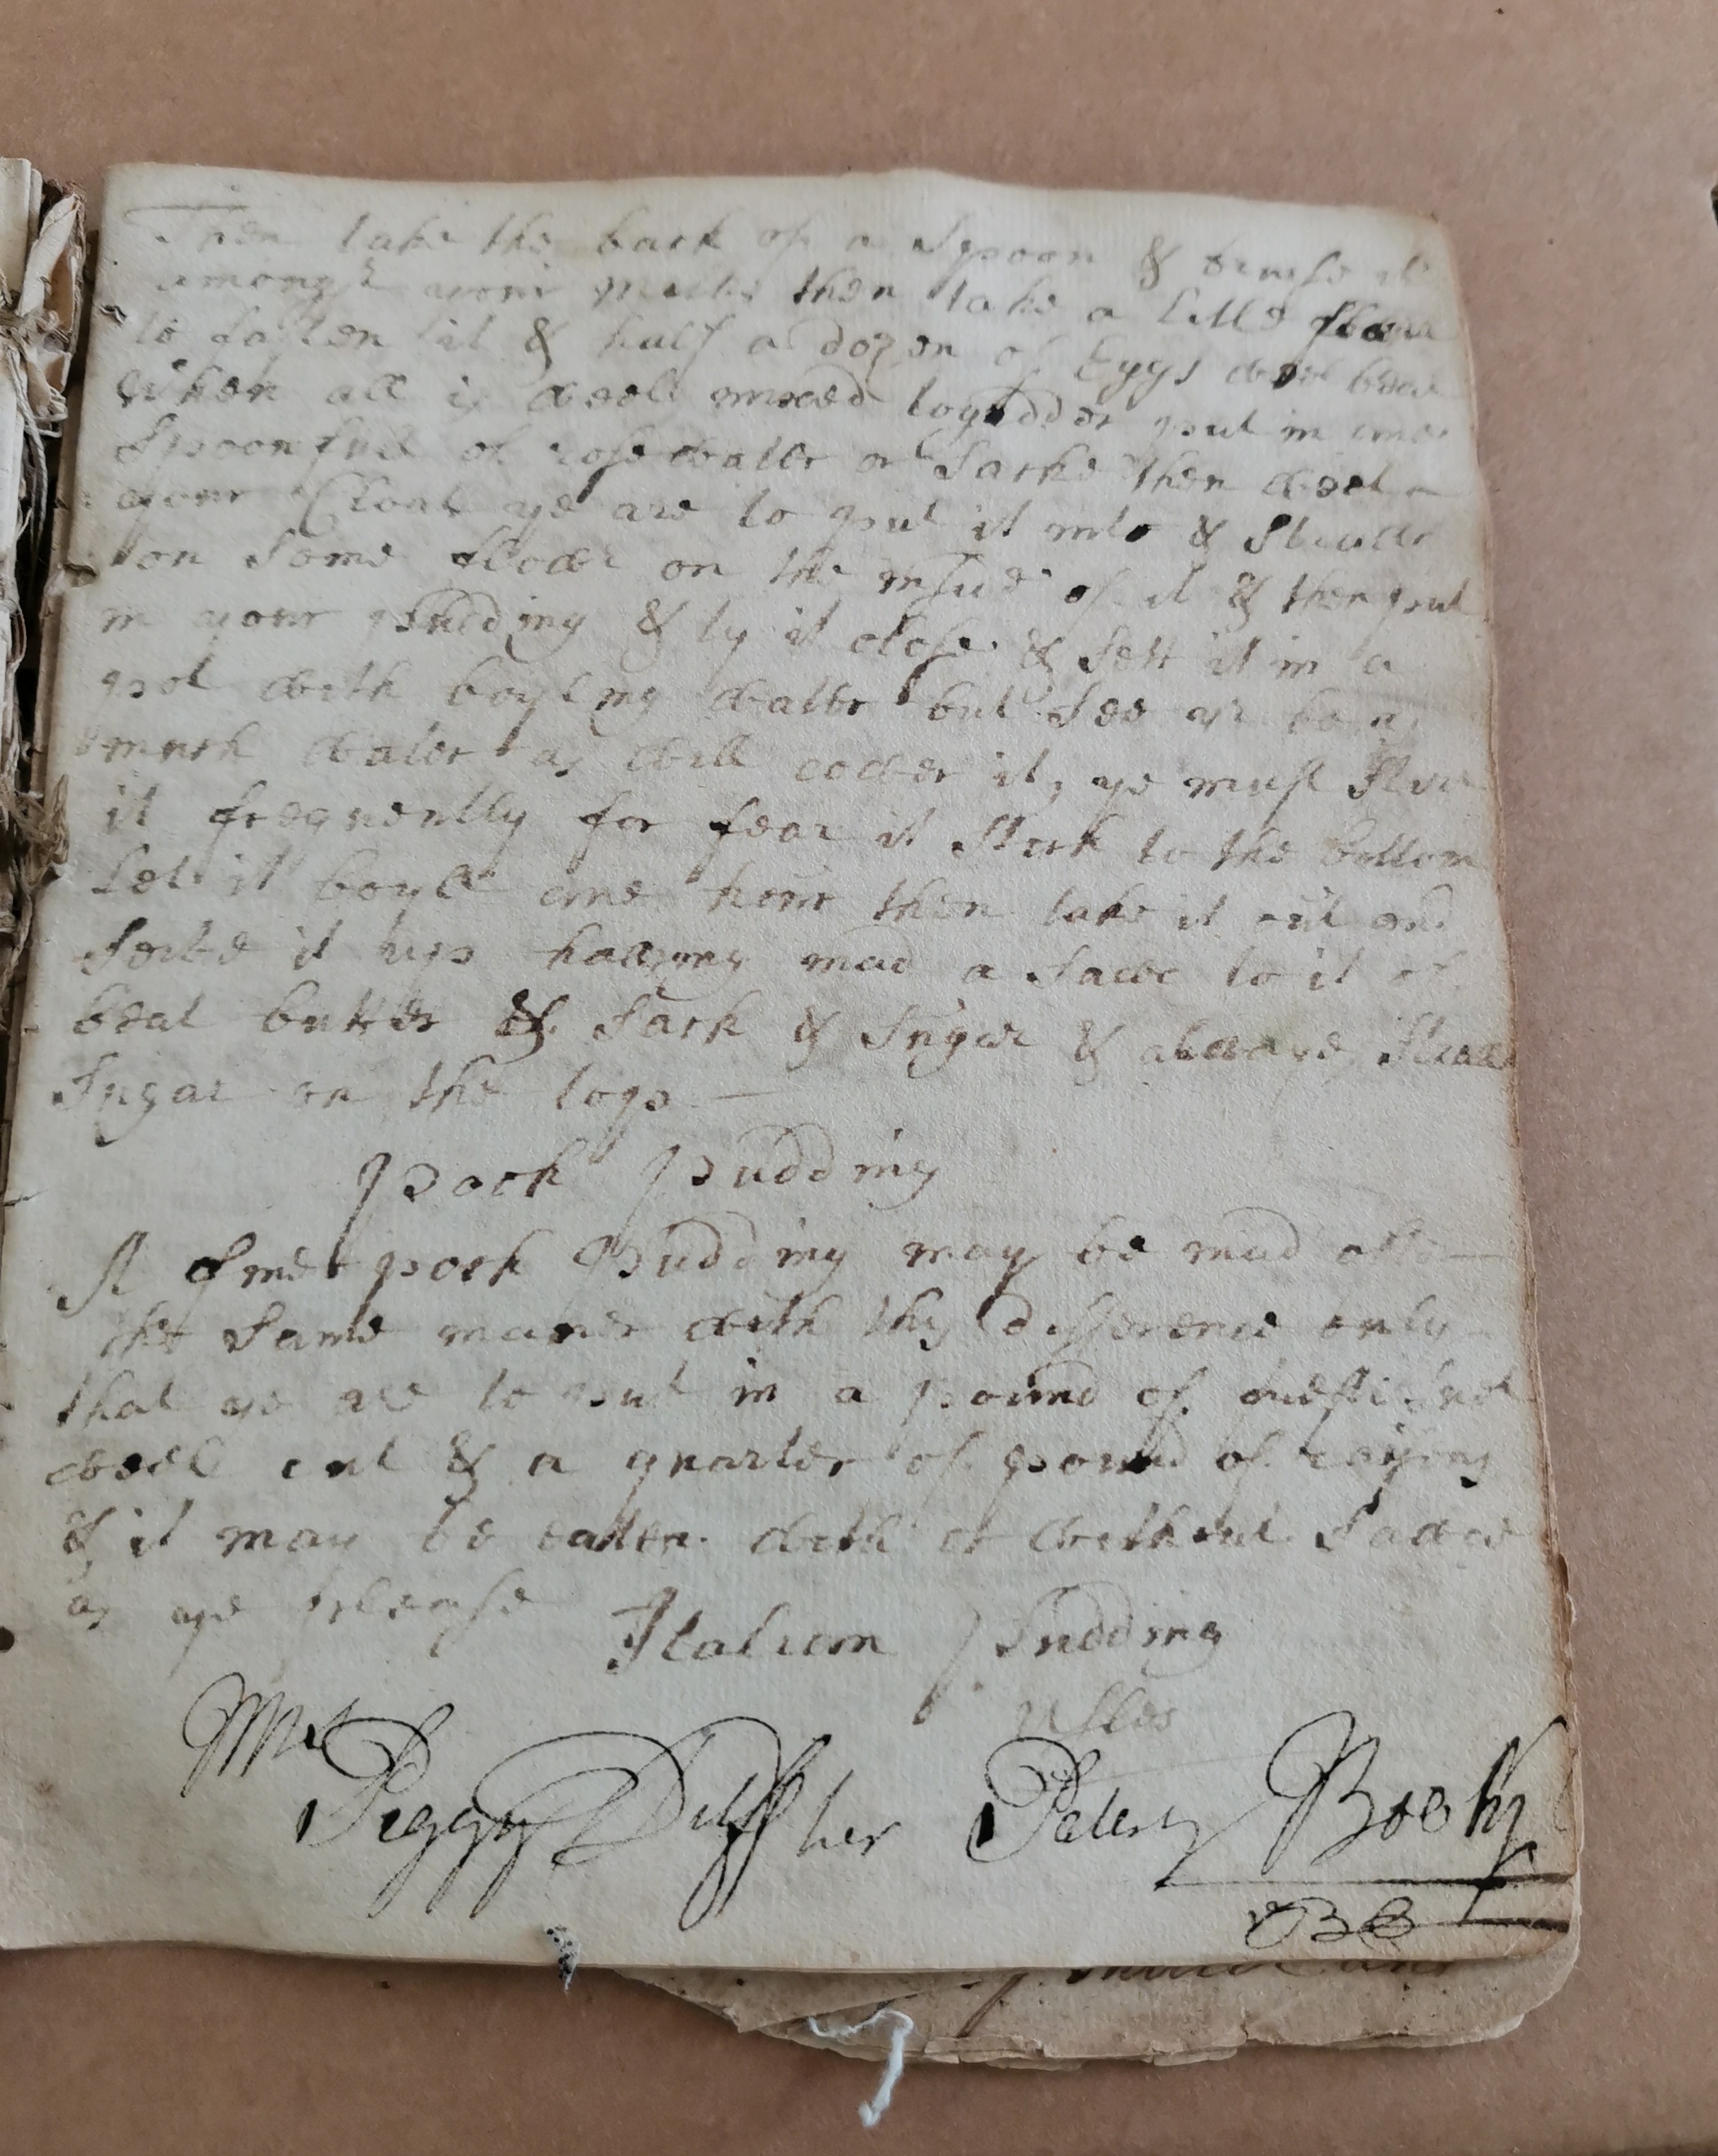 Then take the back of a Spoon & bruise it
amongst your milk then take a litle flower
to fasten it & half a dozen of Eggs weel beat
When all is weel mixed togedder put in ane
Spoonfull of rosewatter or Sacke then weet
your Cloat ye are to put it into & Strawe
on Some flower on the insid of it & then put
in your pudding & ty it close & Sett it in a
pot with boyling watter but See yr be as
much water as will cover it, ye must Stir
it frequently for fear it Stick to the bottom
Let it boyll ane hour then take it out and
Serve it up having mad a Sawce to it of
beat butter & Sack & Sugar & always Straw
Sugar on the top —
Pock Pudding
A fine pock Pudding may be mad after
the Same maner with this difference only
that ye are to put in a pound of Suet
weel cut & a quarter of pound of raisons
& it may be eatten with or without Sauce
as ye please
Italian Pudding
Mrs
Peggy her Peters Book